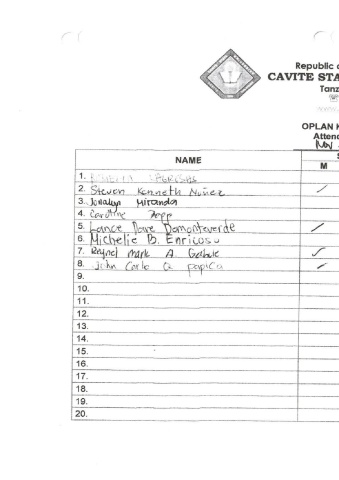 Republic
CAVITE STA
Tanz
OPLAN K
Attend
Nov
NAME
S
M
1.
2. Steven Kenneth Nuñez
3. Jonalyn Miranda
4. Caroline
5. Lance Dave Damonteverde
6. Michelle B. Enricoso
7. Reynel Mark A
8. John Carlo Q. Papica
9.
10.
11.
12.
13.
14.
15.
16.
17.
18.
19.
20.